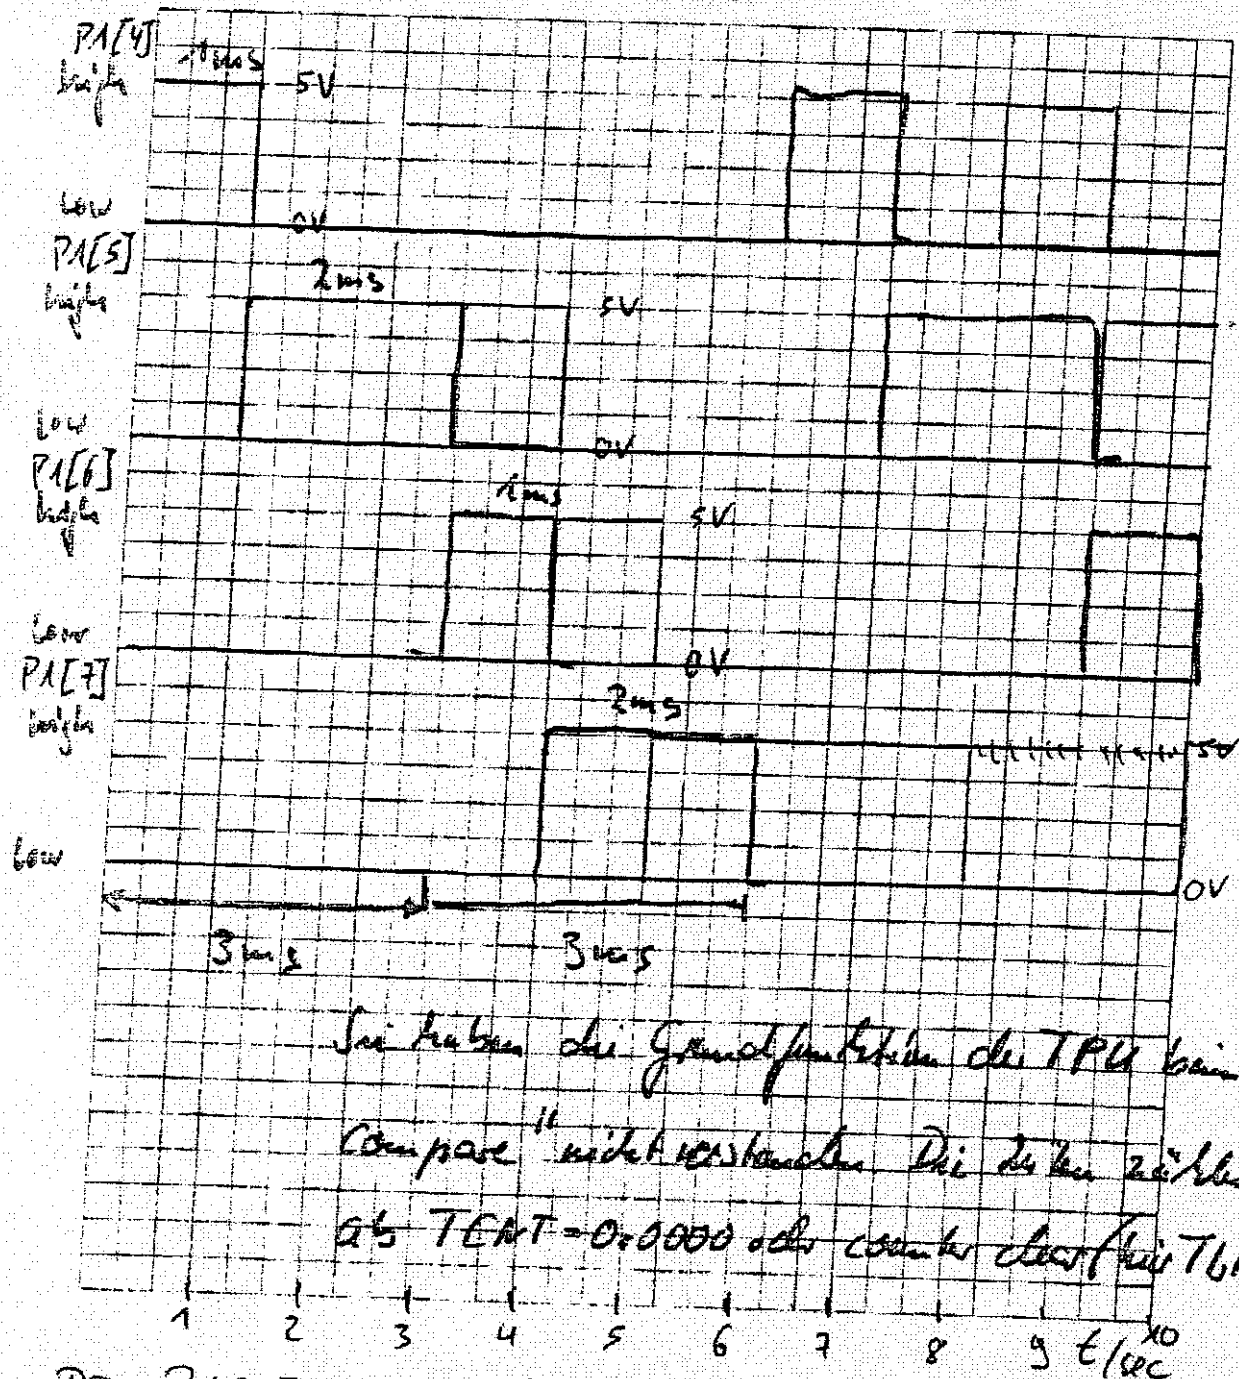 P1[4]
1ms
high
5V
low
0V
P1[5]
2ms
high
5V
low
0V
P1[6]
1ms
high
5V
low
0V
P1[7]
2ms
high
5V
low
0V
3ms 3ms
Sie haben die Grundfunktion der TPU beim
Compare" nicht verstanden. Die Zeiten zählen
ab TCNT=0x0000 oder counter clear (hier
1 2 3 4 5 6 7 8 9 t/sec 10